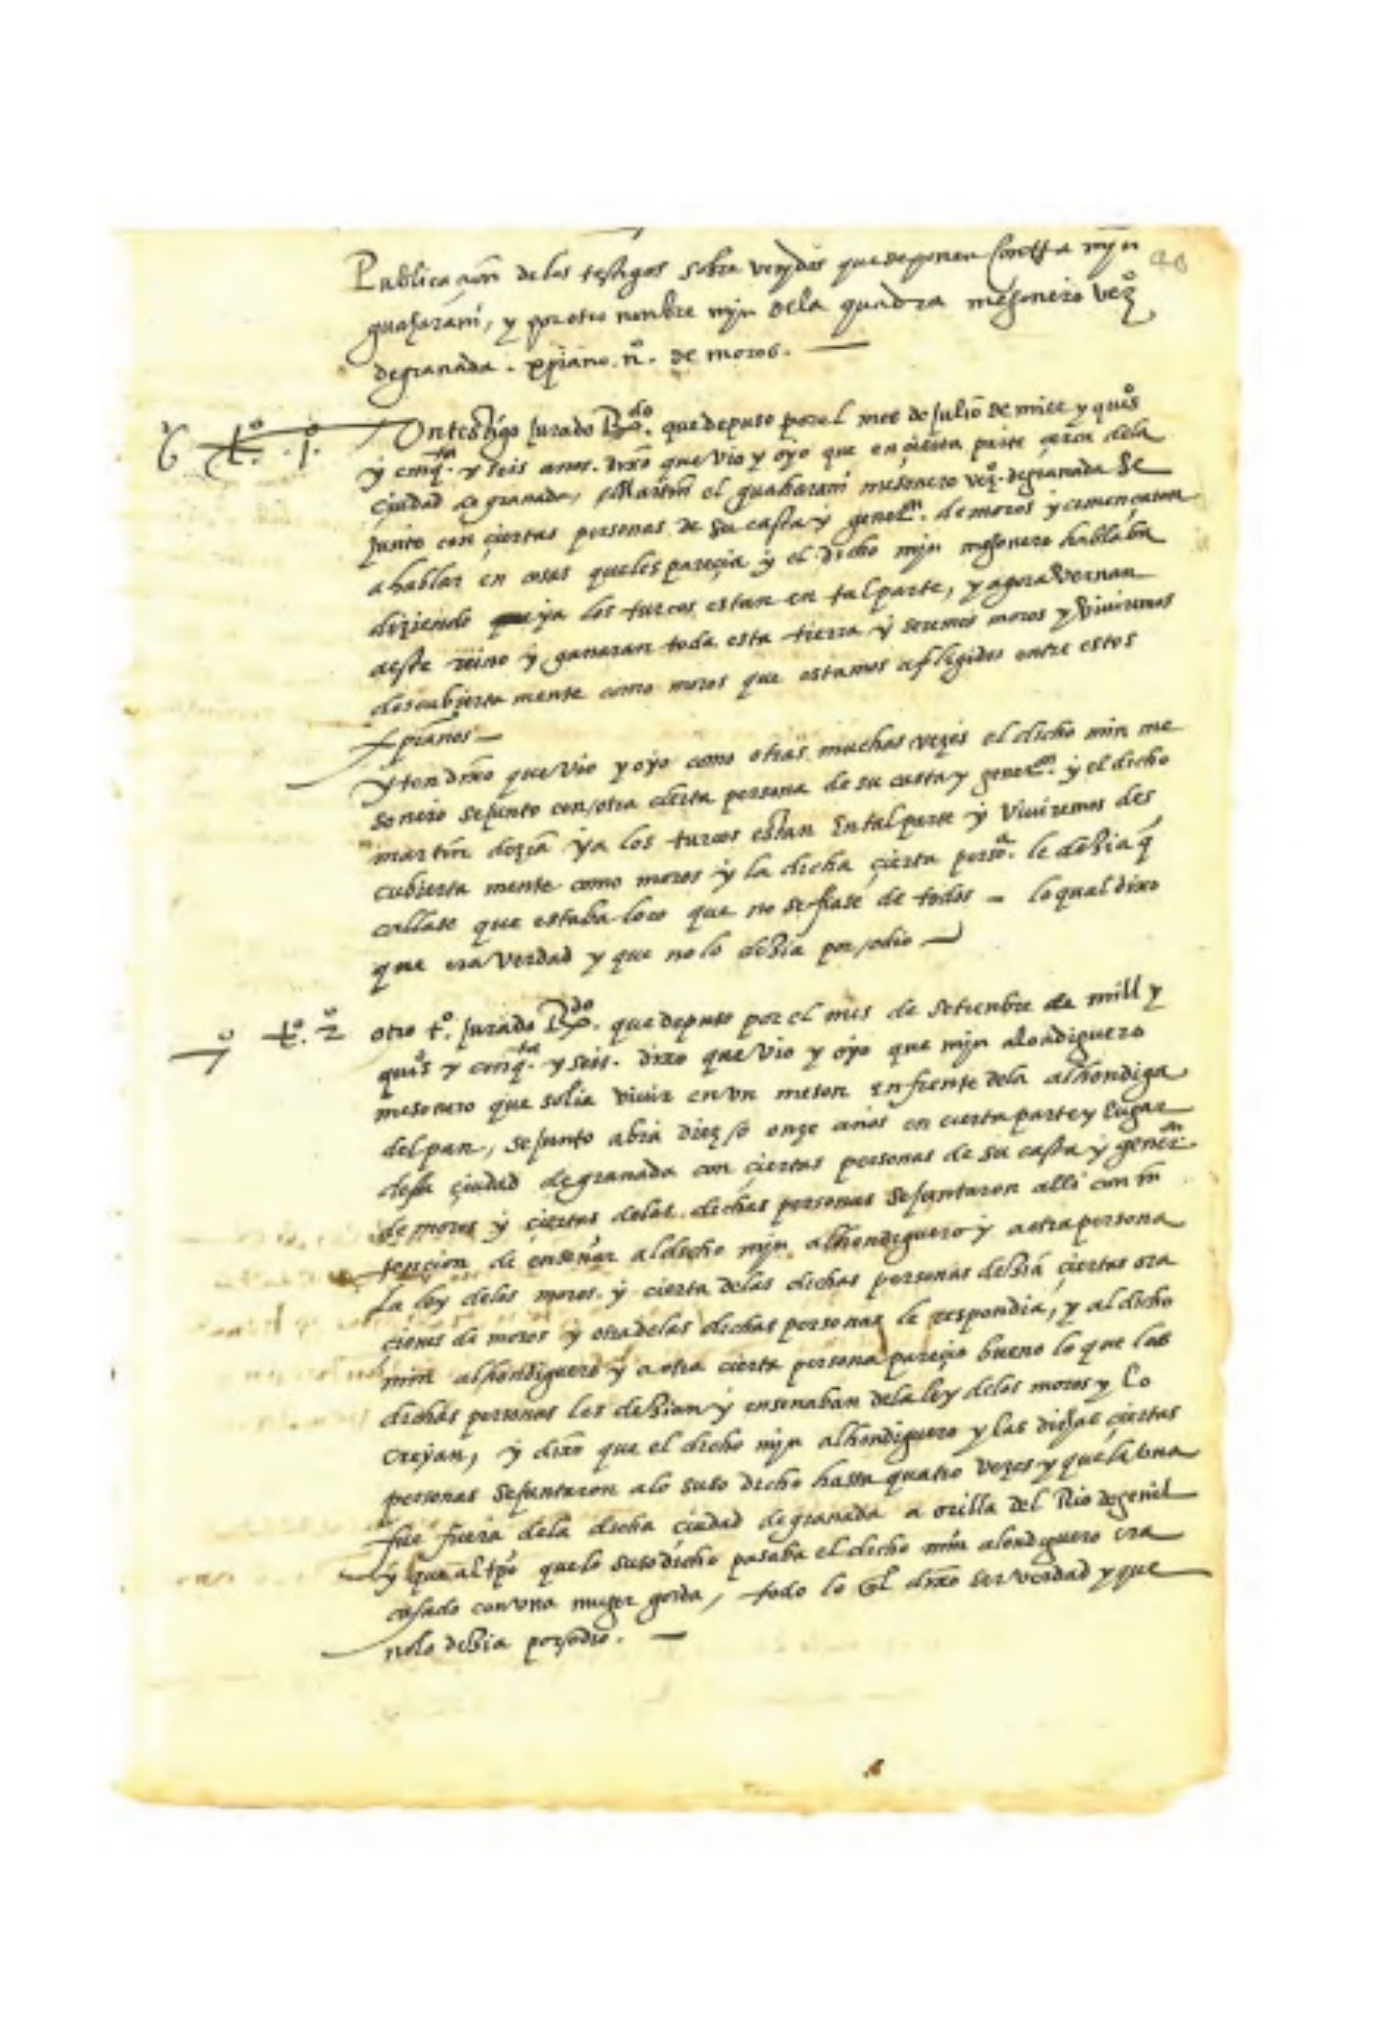 Publicaçion de los testigos sobre venydos que deponen contra myn
guaharani, y por otro nombre myn dela quadra mesonero vezº
de granada. xpiano. nº. de moros.
6 tº. 1º. Un testigo jurado Rdo. que depuso por el mes de julio de mill y quiºs
y cinqta. y seis años. dixo que vio y oyo que en çierta parte çerca dela
çiudad de granada, Martin el guaharani mesonero vezº. de granada se
junto con çiertas personas de su casta y generon. de moros y començaron
a hablar en cosas queles pareçia y el dicho myn mesonero hablaba
diziendo que ya los turcos estan en tal parte, y agora vernan
a este reino y ganaran toda esta tierra y seremos moros y viviremos
descubierta mente como moros que estamos afligidos entre estos
xpianos
Yten dixo que vio y oyo como otras muchas vezes el dicho min me
sonero se junto con otra cierta persona de su casta y generon. y el dicho
martin dezia ya los turcos estan en tal parte y viviremos des
cubierta mente como moros y la dicha çierta persoª. le dezia q
callase que estaba loco que no se fiase de todos – lo qual dixo
que era verdad y que no lo dezia por odio
7º tº. 2º otro tº. jurado Rdo. que depuso por el mes de setienbre de mill y
quiºs y cinqta. y seis. dixo que vio y oyo que myn alondiguero
mesonero que solia vivir en vn meson enfrente dela alhondiga
del pan, se junto abra diez o onze años en cierta parte y lugar
desta çiudad de granada con çiertas personas de su casta y generon.
de moros y çiertas delas dichas personas se juntaron alli con in
tencion de enseñar al dicho myn alhondiguero y a otra persona
la ley delos moros. y cierta delas dichas personas dezia çiertas ora
çiones de moros y otra delas dichas personas le respondia, y al dicho
min alhondiguero y a otra cierta persona pareçio bueno lo que las
dichas personas les dezian y ensenaban dela ley delos moros y lo
creyan, y dixo que el dicho myn alhondiguero y las dichas çiertas
personas se juntaron alo suso dicho hasta quatro vezes y que la una
fue fuera dela dicha çiudad de granada a orilla del Rio de genil
y que al tpo que lo suso dicho pasaba el dicho min alondiguero era
casado con vna muger gorda, todo lo ql dixo ser verdad y que
no lo dezia por odio.